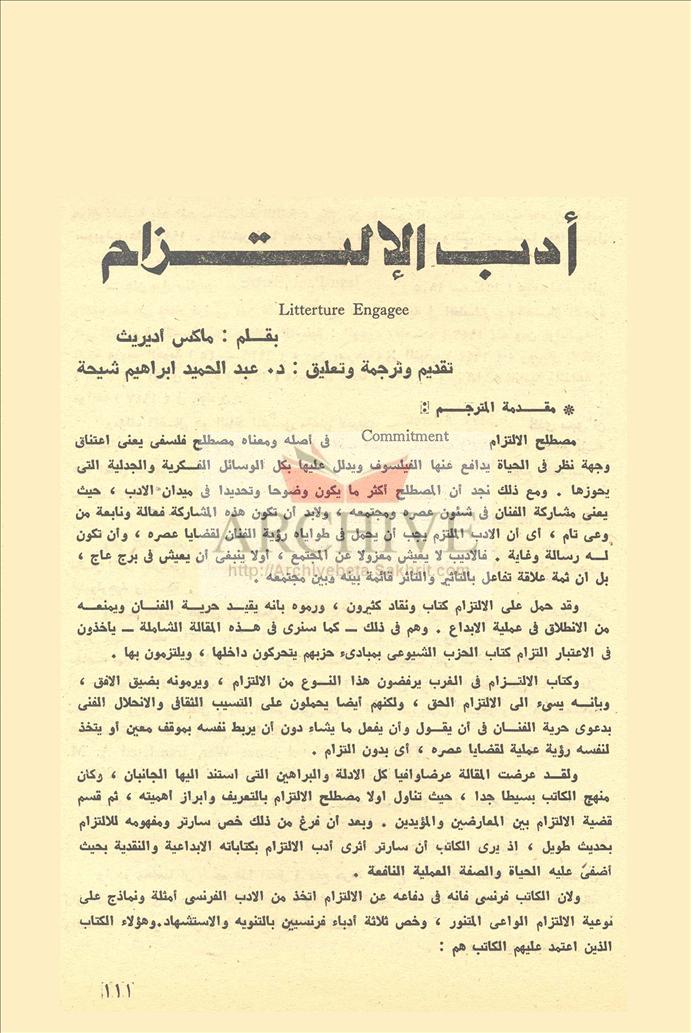 أدب الإلتزام
Litterture Engagee
بقلم : ماكس أديريث
تقديم وترجمة وتعليق : د٠ عبد الحميد ابراهيم شيحة
* مقدمة المترجم :
مصطلح الالتزام Commitment فى أصله ومعناه مصطلح فلسفى يعنى اعتناق
وجهة نظر فى الحياة يدافع عنها الفيلسوف ويدلل عليها بكل الوسائل الفكرية والجدلية التى
يحوزها ٠ ومع ذلك نجد أن المصطلح أكثر ما يكون وضوحا وتحديدا فى ميدان الادب ، حيث
يعنى مشاركة الفنان فى شئون عصره ومجتمعه ، ولابد أن تكون هذه المشاركة فعالة ونابعة من
وعى تام ، أى أن الادب الملتزم يجب أن يحمل فى طواياه رؤية الفنان لقضايا عصره ، وأن تكون
له رسالة وغاية ٠ فالأديب لا يعيش معزولا عن المجتمع ، أولا ينبغى أن يعيش فى برج عاج ،
بل ان ثمة علاقة تفاعل بالتأثير والتأثر قائمة بينه وبين مجتمعه ٠
وقد حمل على الالتزام كتاب ونقاد كثيرون ، ورموه بانه يقيد حرية الفنان ويمنعه
من الانطلاق فى عملية الابداع ٠ وهم فى ذلك ــ كما سنرى فى هذه المقالة الشاملة ــ يأخذون
فى الاعتبار التزام كتاب الحزب الشيوعى بمبادىء حزبهم يتحركون داخلها ، ويلتزمون بها ٠
وكتاب الالتزام فى الغرب يرفضون هذا النوع من الالتزام ، ويرمونه بضيق الافق ،
وبانه يسىء الى الالتزام الحق ، ولكنهم أيضا يحملون على التسيب الثقافى والانحلال الفنى
بدعوى حرية الفنان فى أن يقول وأن يفعل ما يشاء دون أن يربط نفسه بموقف معين أو يتخذ
لنفسه رؤية عملية لقضايا عصره ، أى بدون التزام ٠
ولقد عرضت المقالة عرضاوافيا كل الادلة والبراهين التى استند اليها الجانبان ، وكان
منهج الكاتب بسيطا جدا ، حيث تناول اولا مصطلح الالتزام بالتعريف وابراز أهميته ، ثم قسم
قضية الالتزام بين المعارضين والمؤيدين ٠ وبعد أن فرغ من ذلك خص سارتر ومفهومه للالتزام
بحديث طويل ، اذ يرى الكاتب أن سارتر أثرى أدب الالتزام بكتاباته الابداعية والنقدية بحيث
أضفى عليه الحياة والصفة العملية النافعة ٠
ولان الكاتب فرنسى فانه فى دفاعه عن الالتزام اتخذ من الادب الفرنسى أمثلة ونماذج على
نوعية الالتزام الواعى المتنور ، وخص ثلاثة أدباء فرنسيين بالتنويه والاستشهاد٠وهؤلاء الكتاب
الذين اعتمد عليهم الكاتب هم :
١١١
ARCHIVE
http://Archivebeta.Sakhrit.com